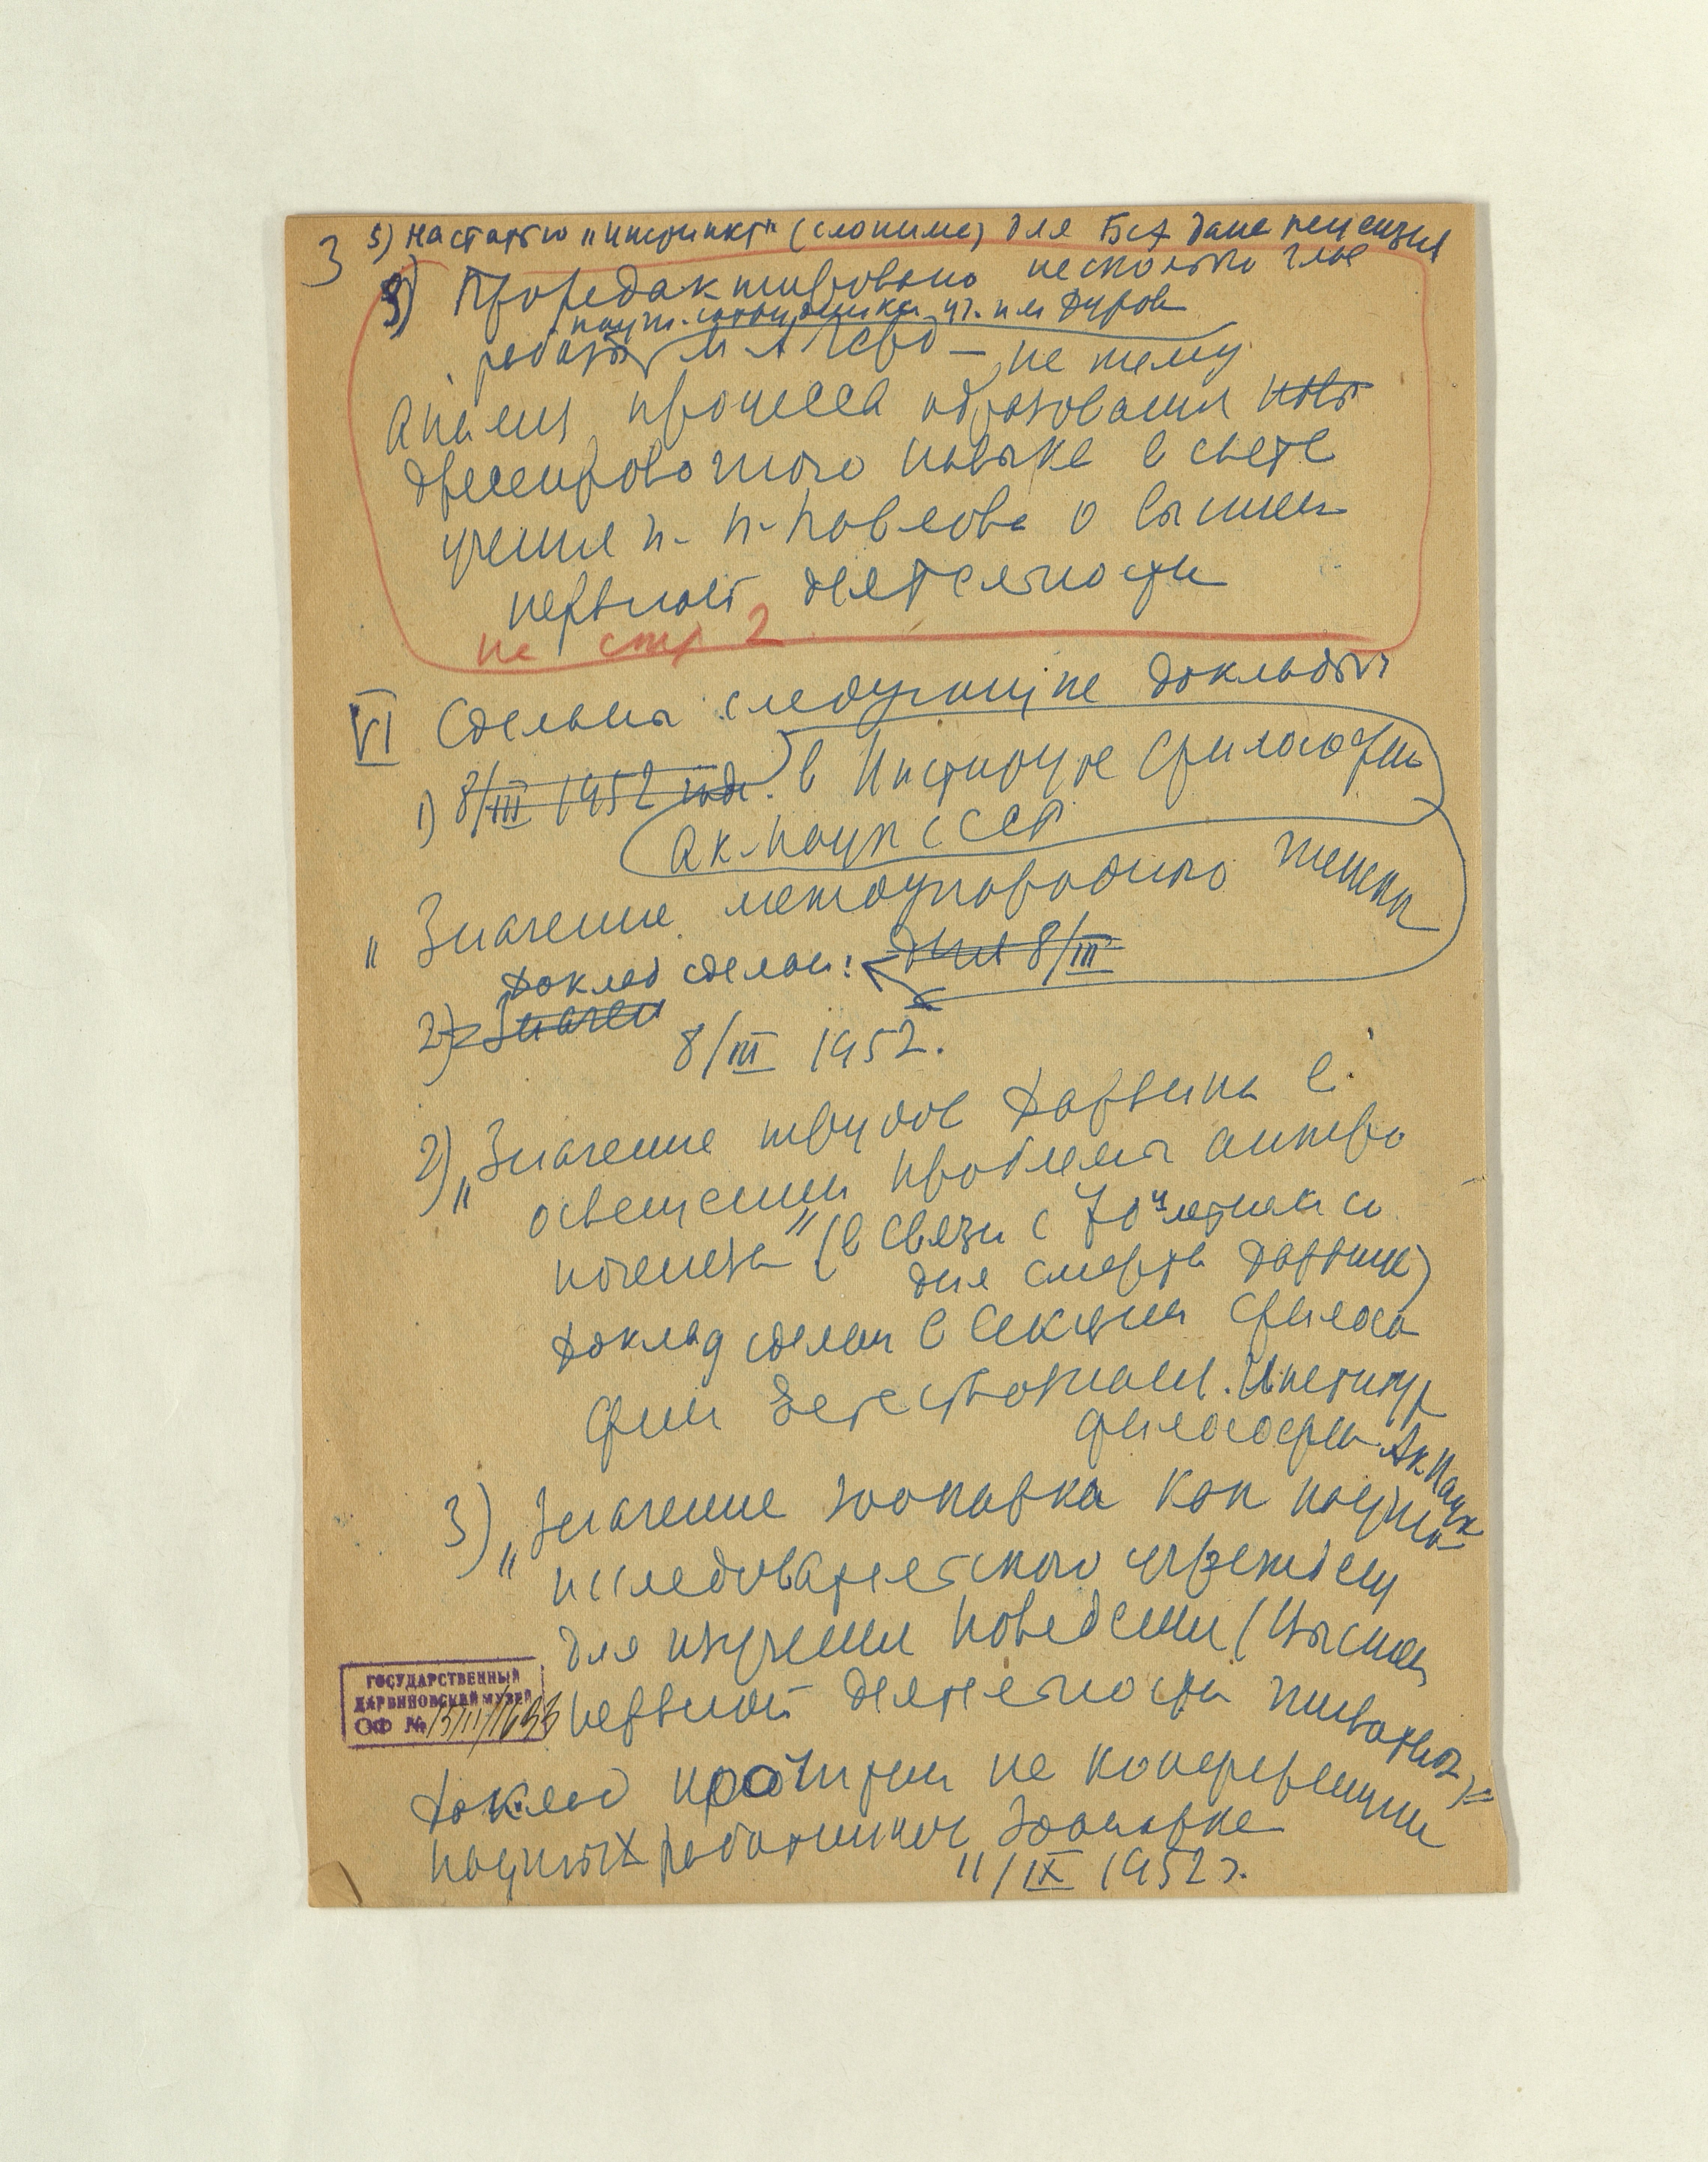 3 5) на статью „инстинкт" (Слонима) для БСЭ дана рецензия
5) Проредактировано несколько глав
научн. сотрудника уг. им Дурова
работы М А Герд — на тему
Анализ процесса образования навы
дрессировочного навыка в свете
учения И. П. Павлова о высшей
нервной деятельности
на стр 2
VI Сделаны следующие доклады
1) 8/III 1952 года. в Институте философии
Ак. Наук СССР
„Значение международного женск
дня 8/III
доклад сделан:
2) Значен
8/III 1952.
2) „Значение трудов Дарвина в
освещении проблемы антропо
ногенеза" (в связи с 70илетием со
дня смерти Дарвина)
Доклад сделан в секции филосо
фии Естествознан. Институт
философии Ак. Наук
3) „Значение зоопарка как научно
исследовательского учрежден
для изучения поведения (высшей
нервной деятельности животных)"
Доклад прочитан на конференции
научных работников Зоопарка
11/IX 1952 г.
ГОСУДАРСТВЕННЫЙ
ДАРВИНОВСКИЙ МУЗЕЙ
ОФ №